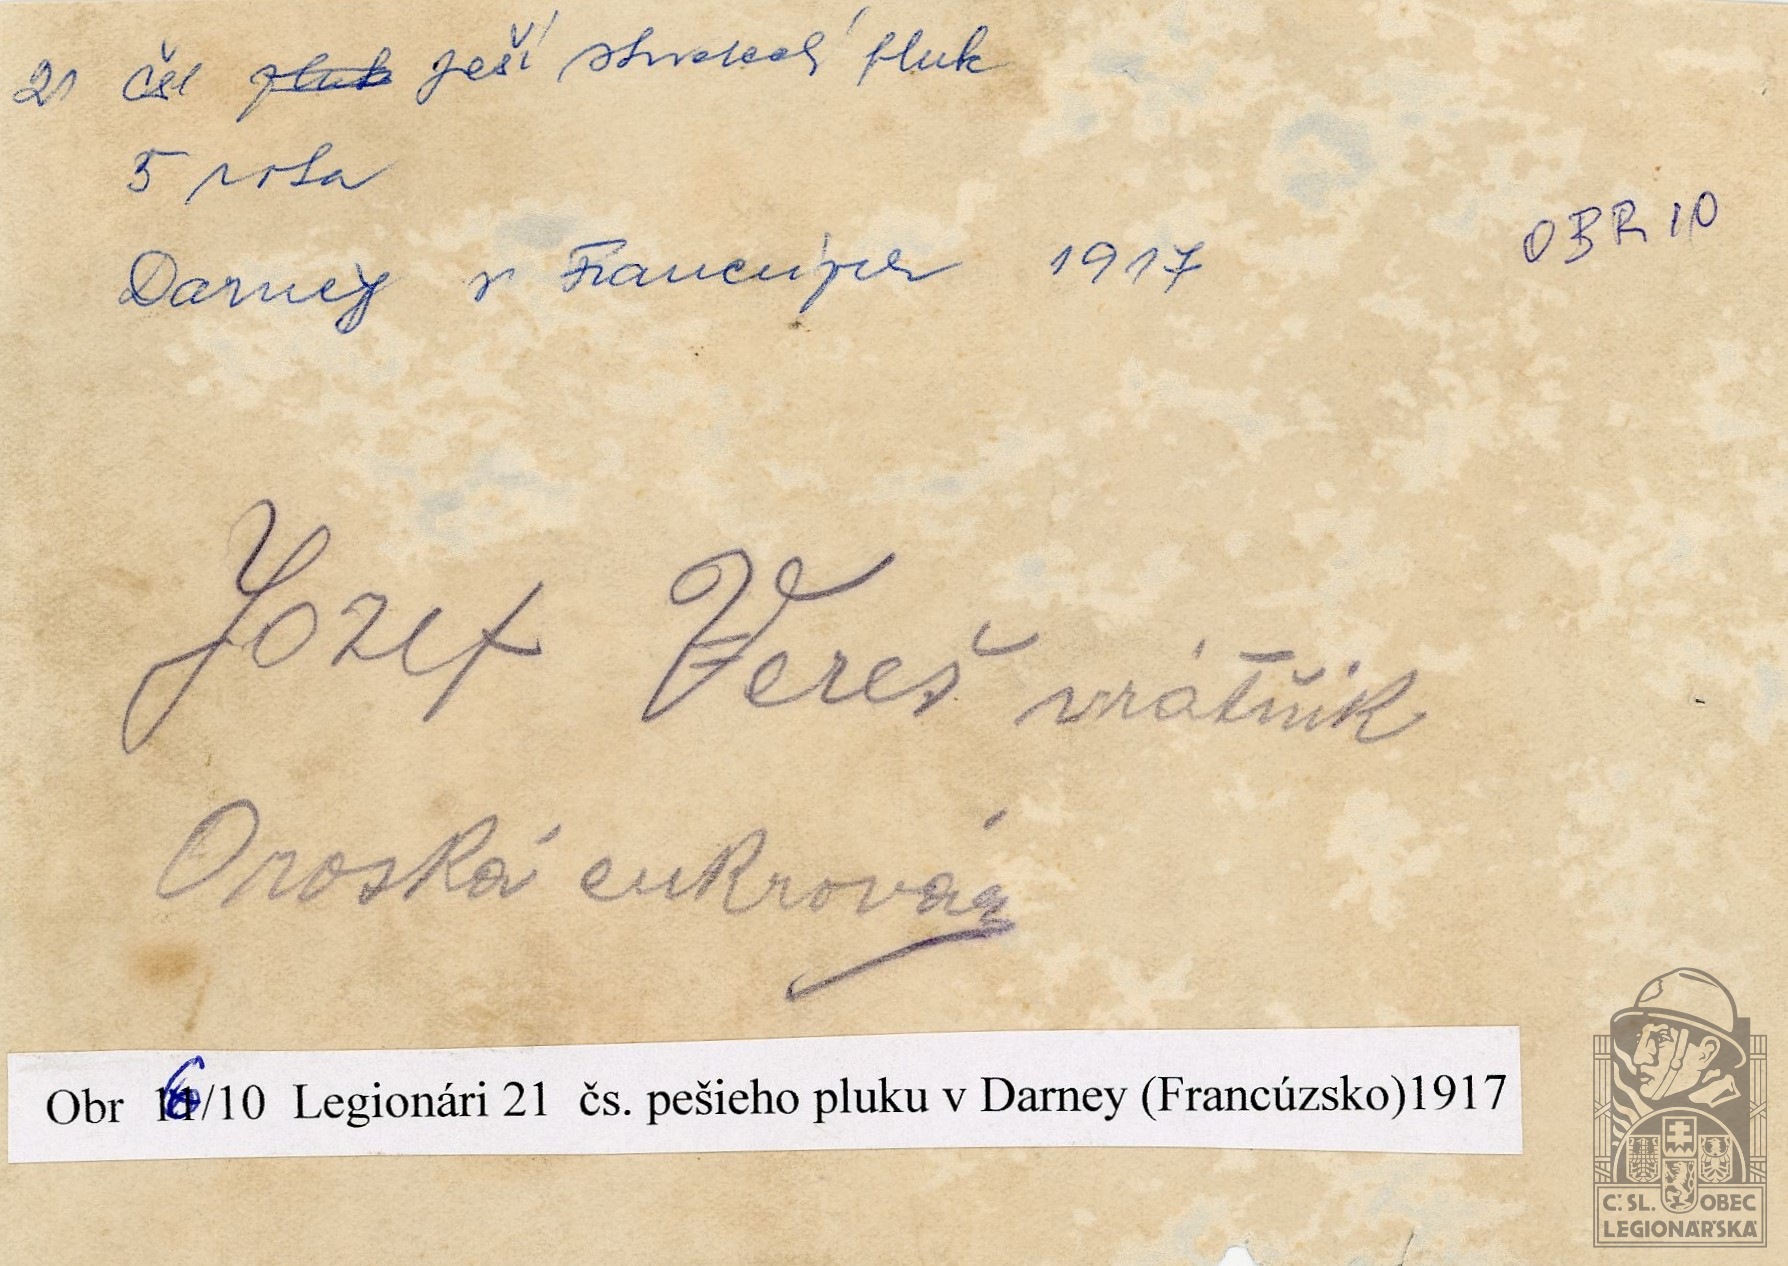 21 čsl pluk peší strelecký pluk
5 rota
Darney v Francúzsku 1917
OBR 10
Jozef Vereš vrátňik
Oroská cukrovár
Obr 6/10 Legionári 21 čs. pešieho pluku v Darney (Francúzsko)1917
Č.SL. OBEC
LEGIONÁŘSKÁ